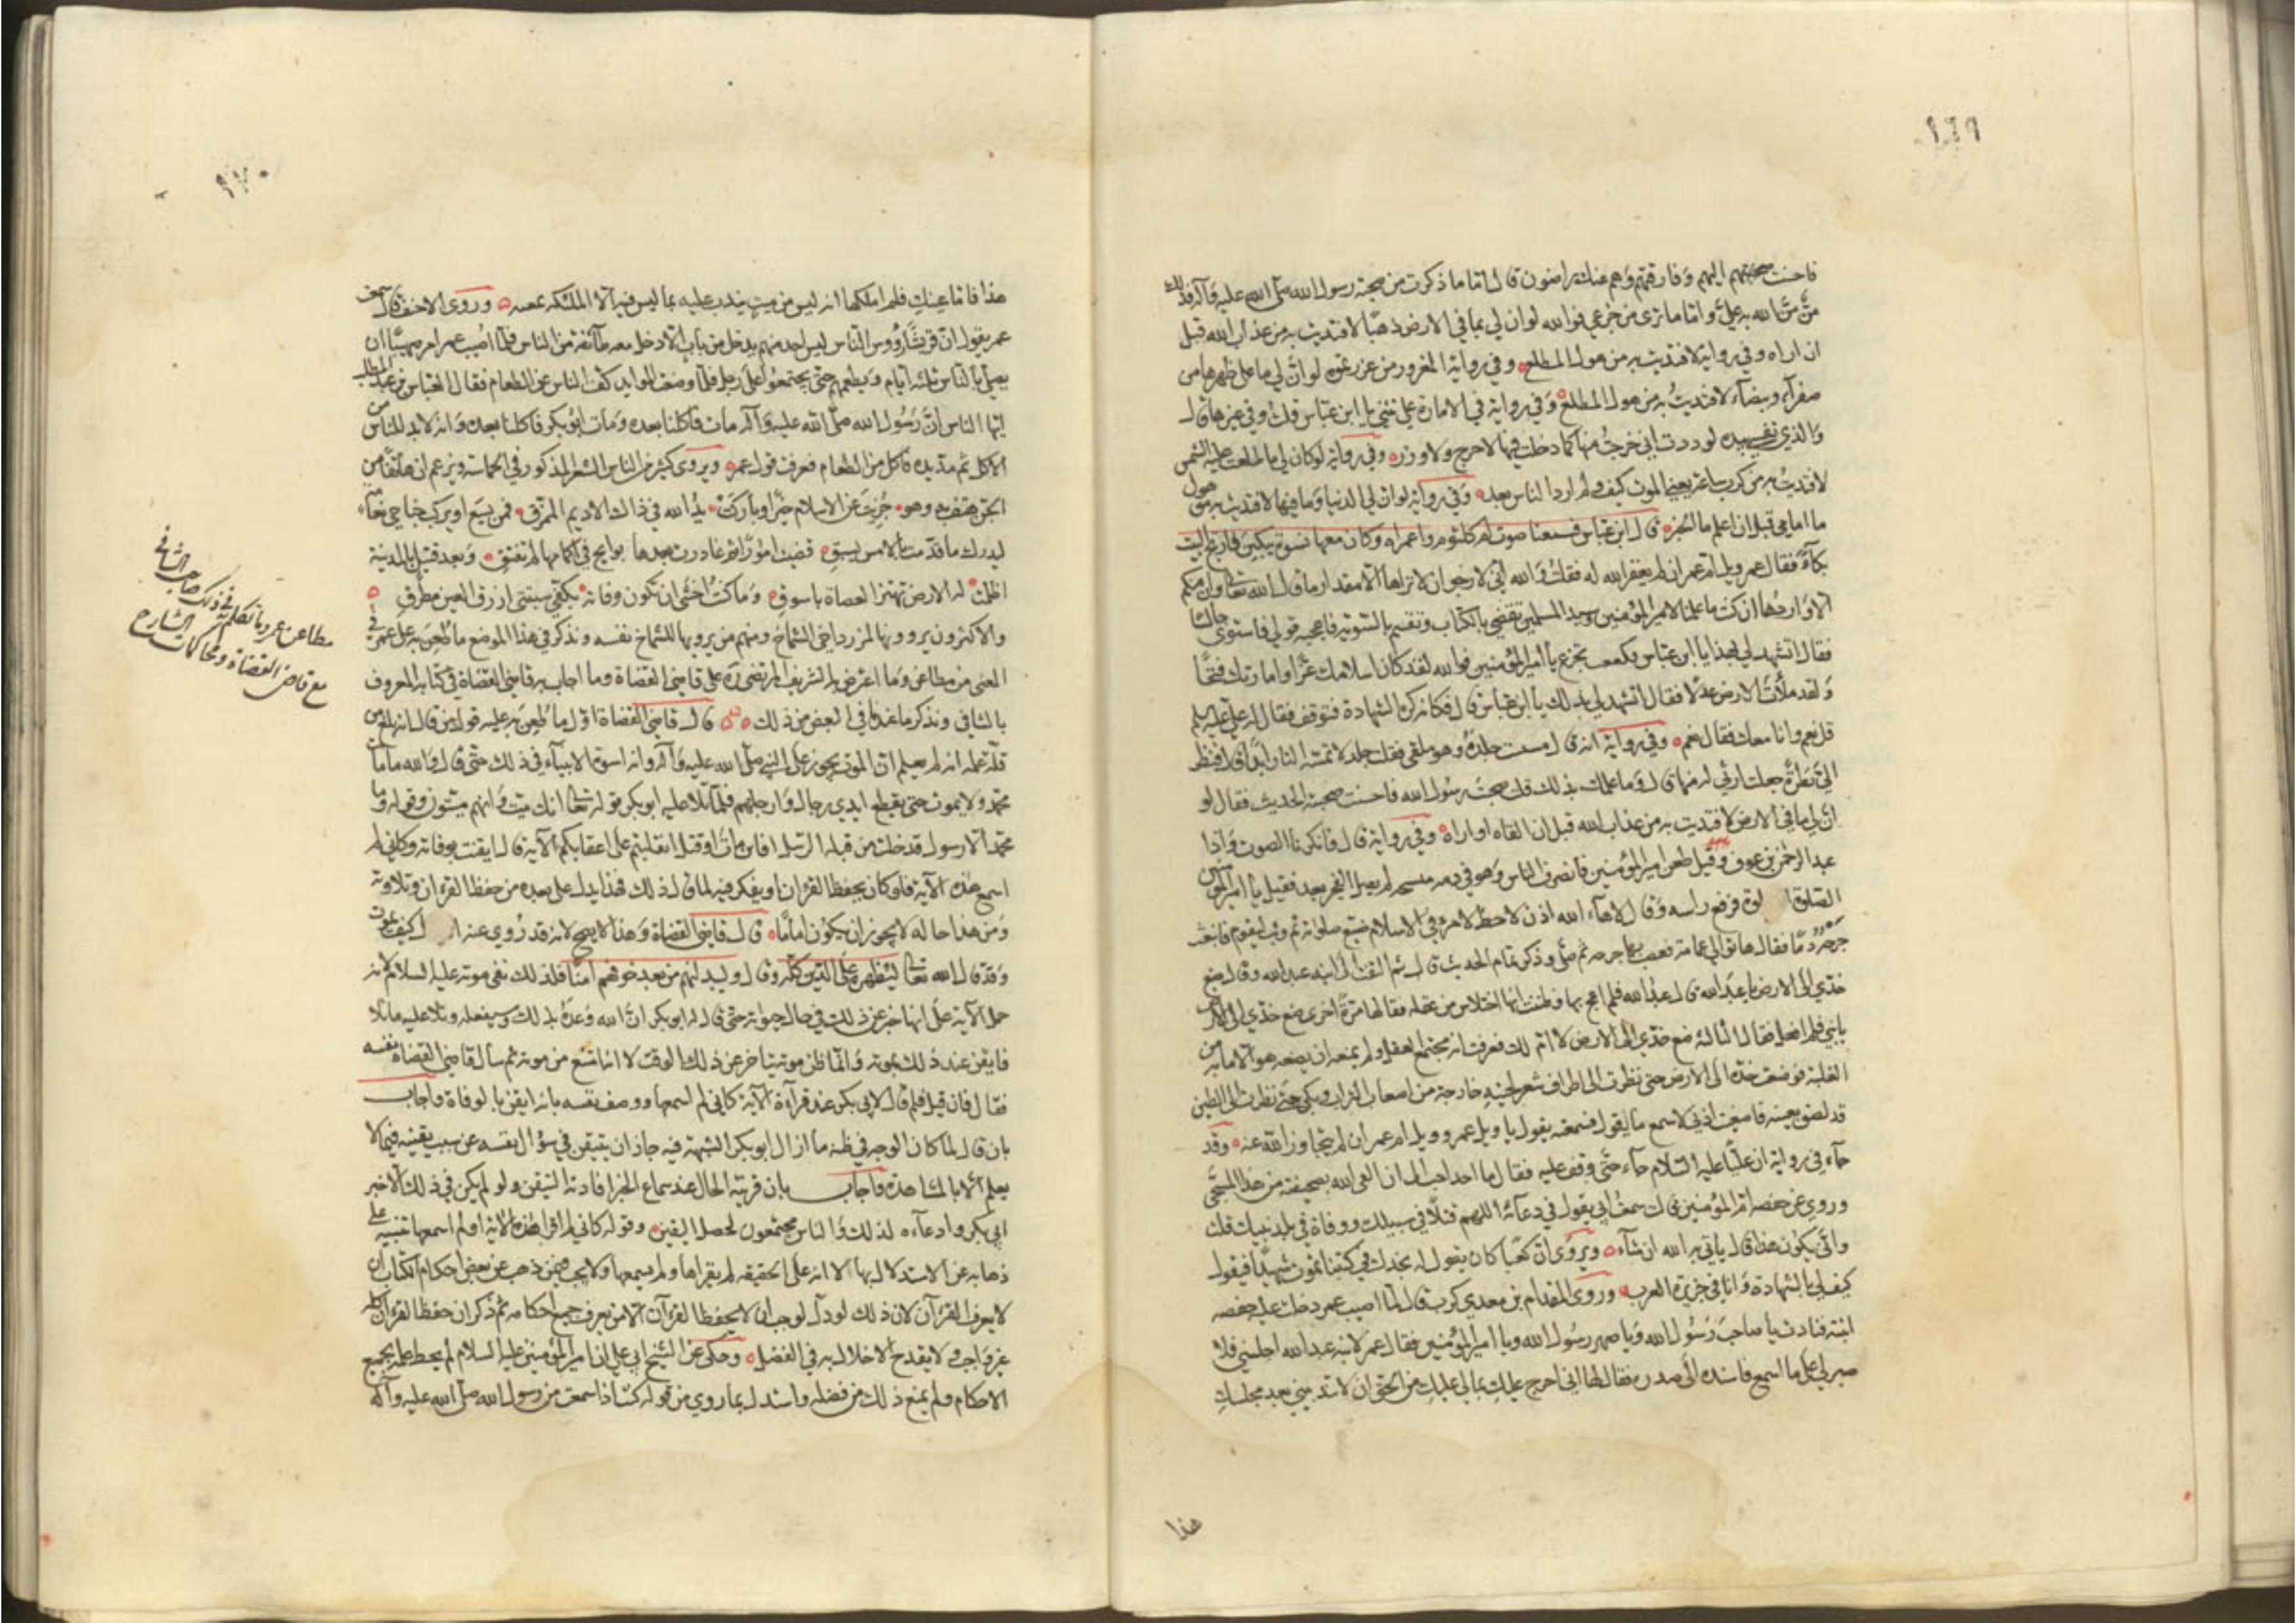 ١٦٩
فاحسنت صحبتهم اليهم وفارقتهم وهم عنك راضون قال اما ما ذكرت من صحبة رسول الله صلى الله عليه وآله فذلك
من من الله به علي واما ما ترى من جزعي فوالله لو ان لي بما في الارض ذهبا لافتديت به من عذاب الله قبل
ان اراه وفي رواية لافتديت به من هول المطلع وفي رواية المغرور من غررتموه لو ان لي ما على ظهرها من
صفراء وبيضاء لافتديت به من هول المطلع وفي رواية في الامارة علي تثني يا ابن عباس قلت وفي غيرها قال
والذي نفسي بيده لوددت اني خرجت منها كما دخلت فيها لا حرج ولا وزر وفي رواية لو كان لي ما طلعت عليه الشمس
لافتديت به من كرب ساعة يعني الموت كيف ولم ارد الناس بعد وفي رواية لو ان لي الدنيا وما فيها لافتديت به من هول
ما امامي قبل ان اعلم ما الخبر قال ابن عباس فسمعنا صوت ام كلثوم واعمراه وكان معها نسوة يبكين فارتج البيت
بكاء فقال عمر ويل ام عمر ان لم يغفر الله له فقلت والله اني لارجو ان لا تراها الا مقدار ما قال الله تعالى وان منكم
الا واردها ان كنت ما علمنا لامير المؤمنين وسيد المسلمين تقضي بالكتاب وتقسم بالسوية فاعجبه قولي فاستوى جالسا
فقال اتشهد لي بهذا يا ابن عباس فكععت تجزع يا امير المؤمنين فوالله لقد كان اسلامك عزا وامارتك فتحا
ولقد ملأت الارض عدلا فقال اتشهد لي بذلك يا ابن عباس قال فكانه كره الشهادة فتوقف فقال له علي عليه السلام
قل نعم وانا معك فقال نعم وفي رواية انه قال مسست جلده وهو ملقى فقلت جلد لا تمسه النار ابدا فنظر
الي نظرة جعلت ارثي له منها قال وما علمك بذلك قلت صحبت رسول الله فاحسنت صحبته الحديث فقال لو
ان لي ما في الارض لافتديت به من عذاب الله قبل ان القاه او اراه وفي رواية قال فانكرنا الصوت واذا
عبد الرحمن بن عوف وقيل طعن امير المؤمنين فانصرف الناس وهو في دمه مسجى لم يصل الفجر بعد فقيل يا امير المؤمنين
الصلوة فرفع راسه وقال لاهاء الله اذن لا حظ لامرئ في الاسلام ضيع صلوته ثم وثب ليقوم فانبعث
جرحه دما فقال هاتوا لي عمامة فعصب بها جرحه ثم صلى وذكر تمام الحديث قال ثم التفت الى ابنه عبد الله وقال ضع
خدي الى الارض يا عبد الله قال عبد الله فلم اعج بها وظننت انها اختلاس من عقله فقالها مرة اخرى ضع خدي الى الارض
يا بني فلم افعل فقال الثالثة ضع خدي الى الارض لا ام لك فعرفت انه مجتمع العقل ولم يمنعه ان يضعه هو الا ما به من
الغلبة فوضعت خده الى الارض حتى نظرت الى اطراف شعر لحيته خارجة من اضعاف التراب وبكى حتى نظرت الى الطين
قد لصق بعينه فاصغيت اذني لاسمع ما يقول فسمعته يقول يا ويل عمر وويل ام عمر ان لم يتجاوز الله عنه وقد
جاء في رواية ان عليا عليه السلام جاء حتى وقف عليه فقال ما احد احب الي ان القى الله بصحيفته من هذا المسجى
وروي عن حفصة ام المؤمنين قالت سمعت ابي يقول في دعائه اللهم قتلا في سبيلك ووفاة في بلد نبيك قلت
وانى يكون هذا قال ياتي به الله ان شاء ويروى ان كعبا كان يقول له نجدك في كتبنا تموت شهيدا فيقول
كيف لي بالشهادة وانا في جزيرة العرب وروى المقدام بن معدي كرب قال لما اصيب عمر دخلت عليه حفصه
ابنته فنادت يا صاحب رسول الله ويا صهر رسول الله ويا امير المؤمنين فقال عمر لابنه عبد الله اجلسني فلا
صبر لي على ما اسمع فاسنده الى صدره فقال لها اني احرج عليك بما لي عليك من الحق ان لا تندبيني بعد مجلسك
هذا
١٧٠
هذا فاما عينك فلم املكها انه ليس من ميت يندب عليه بما ليس فيه الا الملئكة تمقته وروى الاحنف قال سمعت
عمر يقول ان قريشا رؤوس الناس ليس احد منهم يدخل من باب الا دخل معه طائفة من الناس فلما اصيب عمر امر صهيبا ان
يصلي بالناس ثلثة ايام ويطعمهم حتى يجتمعوا على رجل فلما وضعت الموايد كف الناس عن الطعام فقال العباس بن عبد المطلب
ايها الناس ان رسول الله صلى الله عليه وآله مات فاكلنا بعده ومات ابو بكر فاكلنا بعده وانه لا بد للناس من
الاكل ثم مد يده فاكل من الطعام فعرفت قول عمر ويروي كثير من الناس الشعر المذكور في الحماسة ويزعم ان هاتفا من
الجن هتف به وهو جزيت عن الاسلام خيرا وباركت يد الله في ذاك الاديم الممزق فمن يسع او يركب جناحي نعامة
ليدرك ما قدمت بالامس يسبق قضيت امورا ثم غادرت بعدها بوايج في اكمامها لم تفتق وبعد قتيل بالمدينة
اظلمت له الارض تهتز العضاة باسوق وما كنت اخشى ان تكون وفاته بكفي سبنتى ازرق العين مطرق
والاكثرون يروونها لمزرد اخي الشماخ ومنهم من يرويها للشماخ نفسه ونذكر في هذا الموضع ما طعن به على عمر في
المغني من مطاعن وما اعترض به الشريف المرتضى ره على قاضي القضاة وما اجاب به قاضي القضاة في كتابه المعروف
بالشافي ونذكر ما عندنا في البعض من ذلك قال قاضي القضاة اول ما طعن به عليه قول من قال انه بلغ من
قلة علمه انه لم يعلم ان الموت يجوز على النبي صلى الله عليه وآله وانه اسوة الانبياء في ذلك حتى قال والله ما مات
محمد ولا يموت حتى يقطع ايدي رجال وارجلهم فلما تلا عليه ابو بكر قوله تعالى انك ميت وانهم ميتون وقوله وما
محمد الا رسول قد خلت من قبله الرسل افان مات او قتل انقلبتم على اعقابكم الآية قال ايقنت بوفاته وكاني لم
اسمع هذه الآية فلو كان يحفظ القرءان او يفكر فيه لما قال ذلك فهذا يدل على بعده من حفظ القرءان وتلاوته
ومن هذا حاله لا يجوز ان يكون اماما قال قاضي القضاة وهذا لا يصح لانه قد روي عنه انه قال كيف يموت
وقد قال الله تعالى ليظهره على الدين كله وقال وليبدلنهم من بعد خوفهم امنا فلذلك نفى موته عليه السلام لانه
حمل الآية على انها خبر عن ذلك في حال حيوته حتى قال له ابو بكر ان الله وعده بذلك وسيفعله وتلا عليه ما تلا
فايقن عند ذلك بموته وانما ظن موته يتاخر عن ذلك الوقت لا انه امتنع من موته ثم سأل قاضي القضاة نفسه
فقال فان قيل فلم قال لابي بكر عند قراءة الآية كاني لم اسمعها ووصف نفسه بانه ايقن بالوفاة واجاب
بان قال لما كان الوجه في ظنه ما ازال ابو بكر الشبهة فيه جاز ان يتيقن في سؤال نفسه عن سبب يقينه فيما لا
يعلم الا بالمشاهدة واجاب بان قرينة الحال عند سماع الخبر افادته اليقين ولو لم يكن في ذلك الا خبر
ابي بكر وادعاءه لذلك والناس مجتمعون لحصل اليقين وقوله كاني لم اقرا هذه الآية او لم اسمعها تنبيه على
ذهابه عن الاستدلال بها لا انه على الحقيقة لم يقراها ولم يسمعها ولا يجب فيمن ذهب عن بعض احكام الكتاب ان
لا يعرف القرآن لان ذلك لو دل لوجب ان لا يحفظ القرآن الا من يعرف جميع احكامه ثم ذكر ان حفظ القرآن كله
غير واجب ولا يقدح الاخلال به في الفضل وحكى عن الشيخ ابي علي ان امير المؤمنين عليه السلام لم يحط علمه بجميع
الاحكام ولم يمنع ذلك من فضله واستدل بما روي من قوله كنت اذا سمعت من رسول الله صلى الله عليه وآله
مطاعن عمر وما تكلم في ذلك صاحب الشافي
مع قاضي القضاة ومحاكمات الشارح